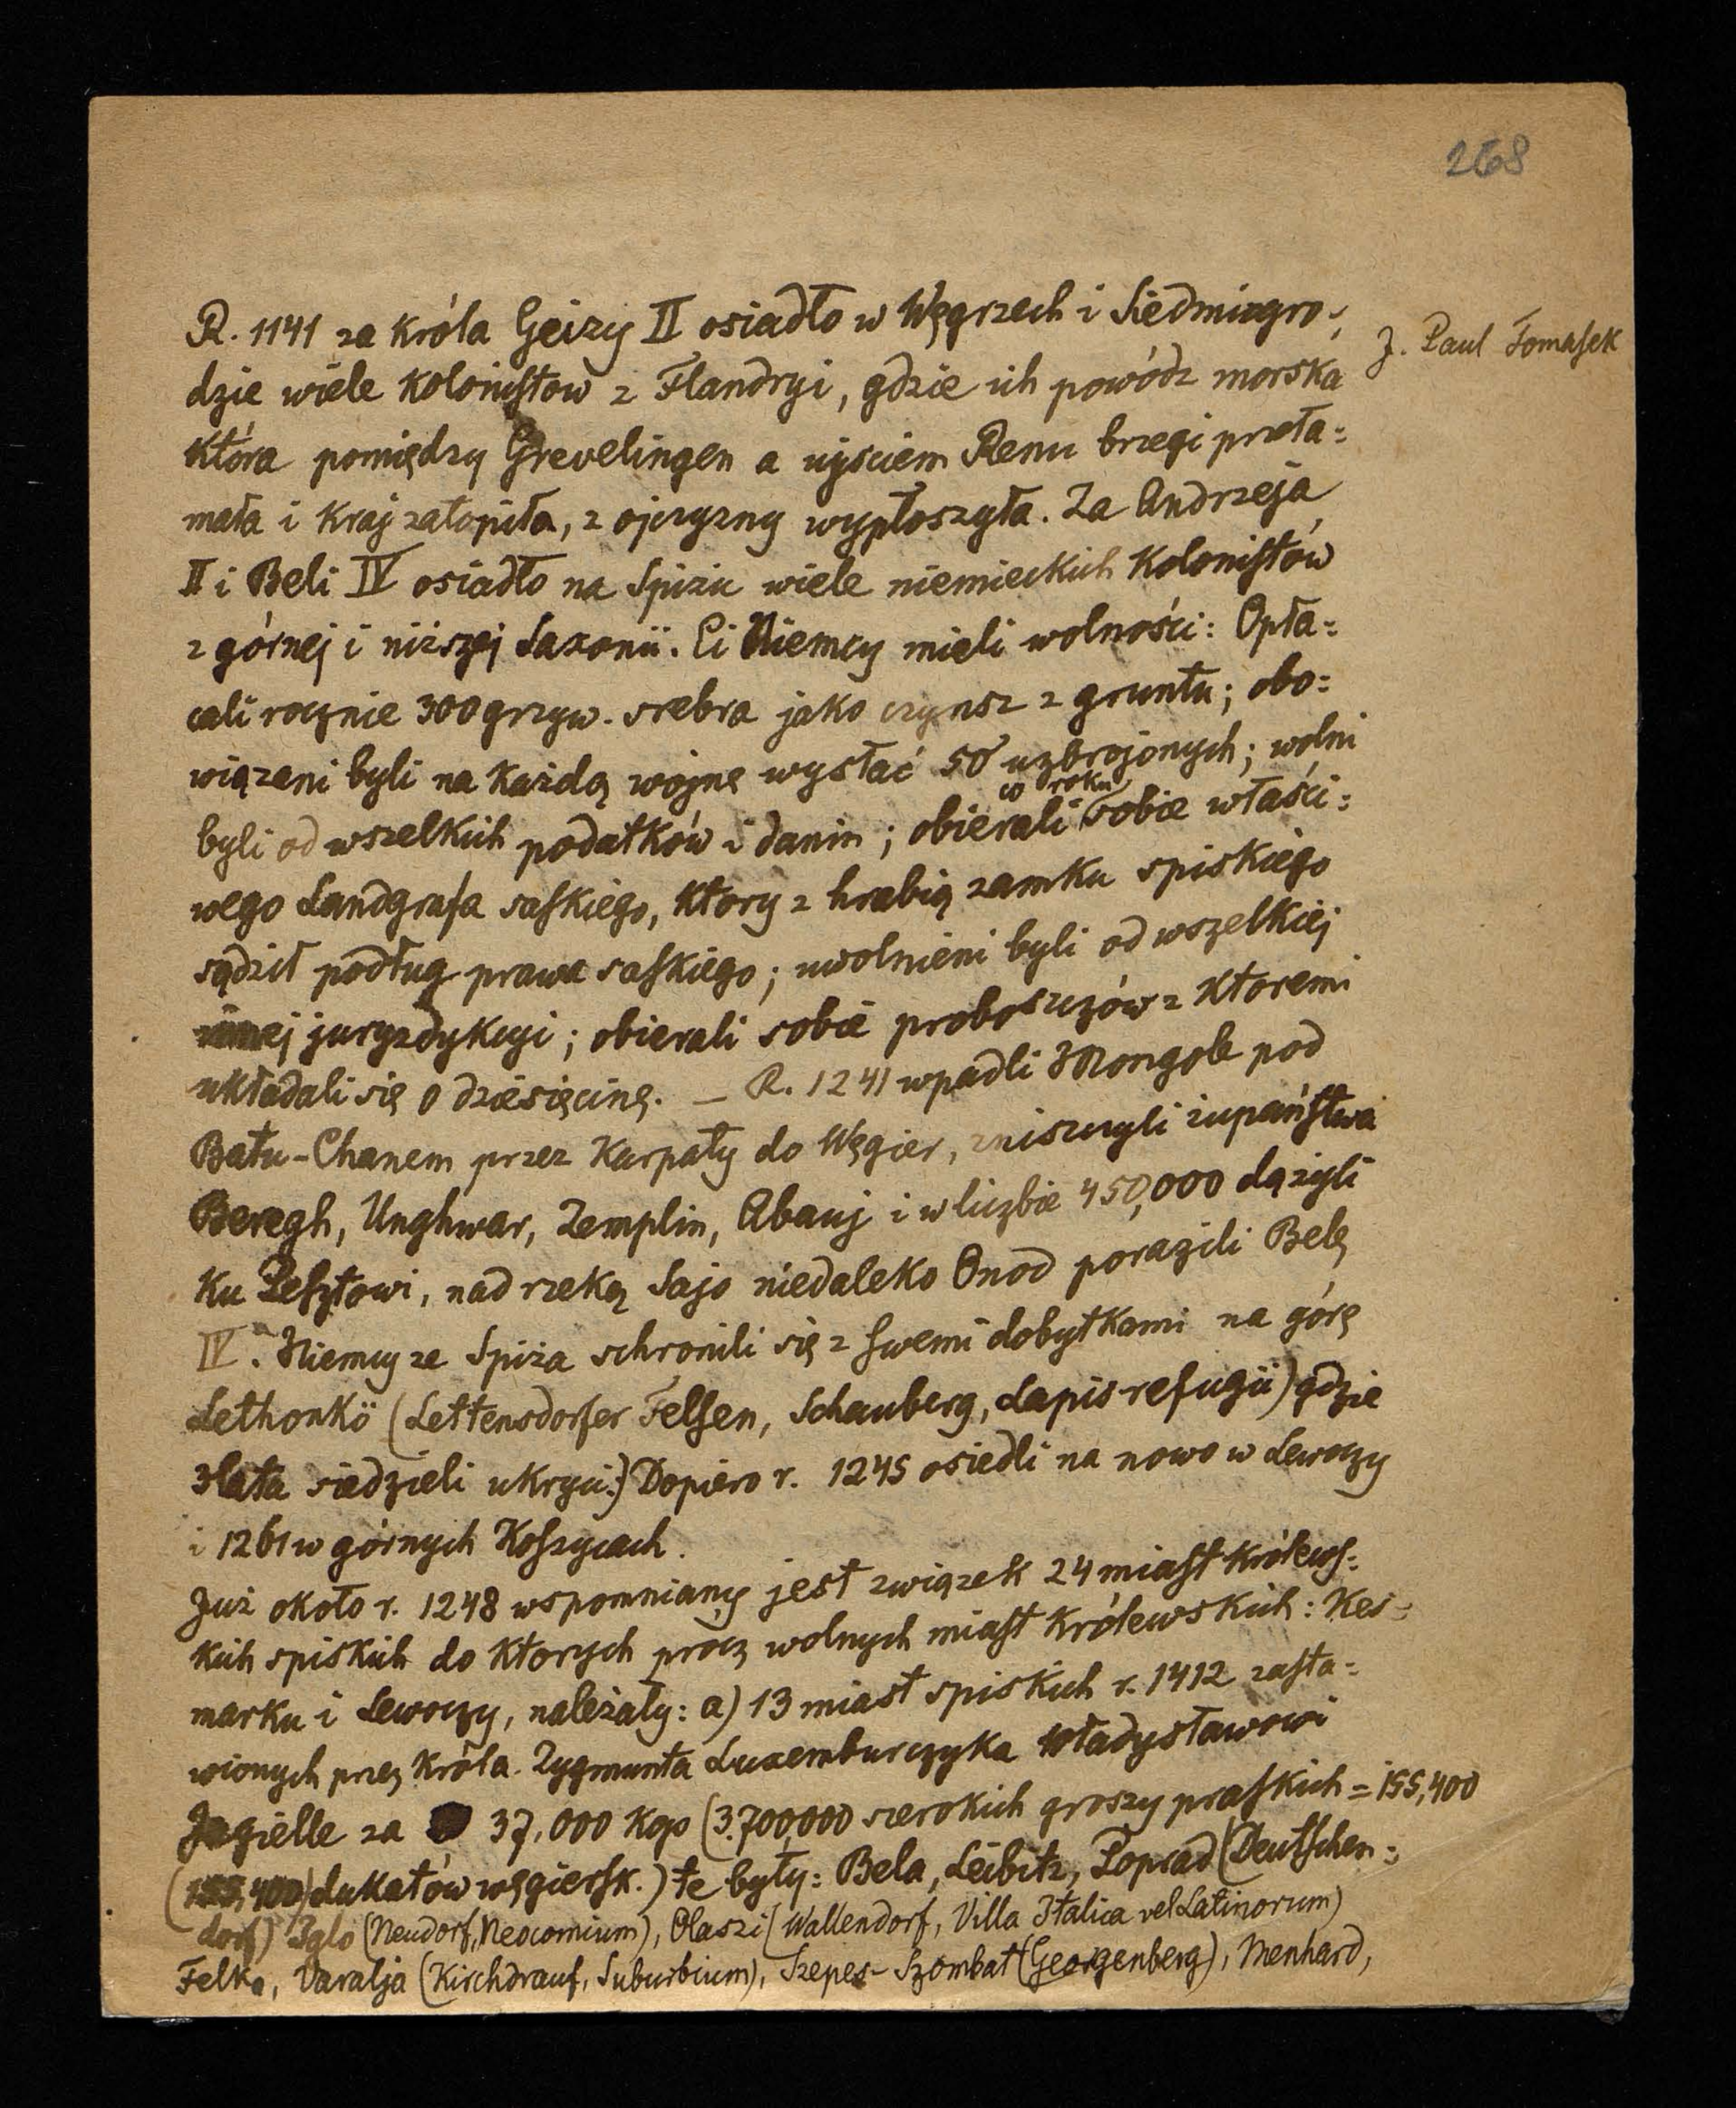 268
R. 1141 za króla Geizy II osiadło w Węgrzech i Siedmiogro-
J. Paul Tomasek
dzie wiele kolonistow z Flandryi, gdzie ich powódz morska
która pomiędzy Grevelingen a ujściem Renu brzegi przeła=
mała i kraj zatopiła, z ojczyzny wypłoszyła. Za Andrzeja
II i Beli IV osiadło na Spiżu wiele niemieckich kolonistów
z górnej i niższej Saxonii. Ci Niemcy mieli wolności: Opła=
cali rocznie 300 grzyw. srebra jako czynsz z gruntu; obo=
wiązani byli na każdą wojnę wysłać 50 uzbrojonych; wolni
w roku
byli od wszelkich podatków i danin; obierali sobie właści=
wego Landgrafa saskiego, ktory z hrabią zamku spiskiego
sądził podług prawa saskiego; uwolnieni byli od wszelkiej
innej juryzdykcyi; obierali sobie proboszczów z ktoremi
układali się o dziesięcinę. — R. 1241 wpadli Mongole pod
Batu-Chanem przez Karpaty do Węgier, zniszczyli żupaństwa
Beregh, Unghwar, Zemplin, Abauj i w liczbie 450,000 dążyli
ku Pesztowi, nad rzeką Sajo niedaleko Onod porazili Belę
IV. Niemcy ze Spiża schronili się z swemi dobytkami na górę
Lethonkö (Lettensdorfer Felsen, Schauberg, Lapis refugii) gdzie
3 lata siedzieli ukryci.) Dopiero r. 1245 osiedli na nowo w Lewoczy
i 1261 w górnych Koszycach.
Już około r. 1248 wspomniany jest związek 24 miast królews=
kich spiskich do ktorych procz wolnych miast królewskich: Kes=
marku i Lewoczy, należały: a) 13 miast spiskich r. 1412 zasta=
wionych przez króla Zygmunta Luxemburczyka Władysławowi
Jagielle za 37,000 kop (3.700,000 szerokich groszy praskich = 155,400
(155,400) dukatów węgiersk.) te były: Bela, Leibitz, Poprad (Deutschen=
dorf) Iglo (Neudorf, Neocomium), Olaszi (Wallendorf, Villa Italica vel Latinorum)
Felka, Varalja (Kirchdrauf, Suburbium), Szepes-Szombat (Georgenberg), Menhard,